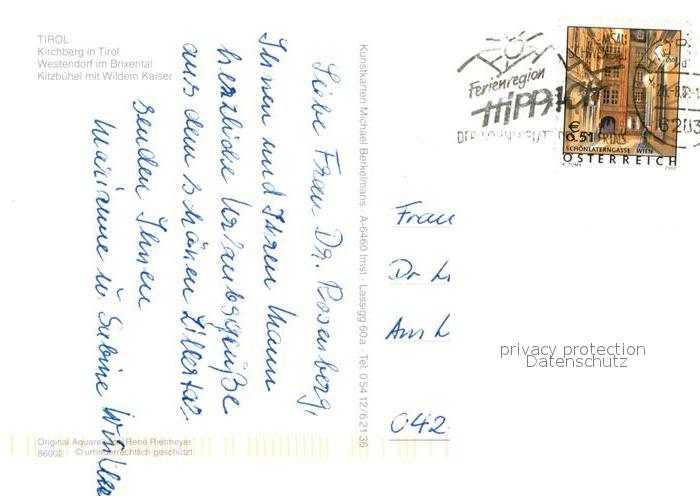 TIROL
Kirchberg in Tirol
Westendorf im Brixental
Kitzbühel mit Wildem Kaiser
Liebe Frau Dr. Rosenberg,
Ihnen und Ihrem Mann
herzliche Urlaubsgrüße
aus dem schönen Zillertal.
senden Ihnen
Marianne u. Sabine
Kunstkarten Michael Berkelmans A-6460 Imst Lassigg 60a Tel. 05412/62136
Ferienregion
HIPPACH
€
0.51
SCHÖNLATERNGASSE WIEN
ÖSTERREICH
A. TUMA
2002
Frau
Dr
Am
042
privacy protection
Datenschutz
Original Aquarell von René Rietmeyer
86002 © urheberrechtlich geschützt